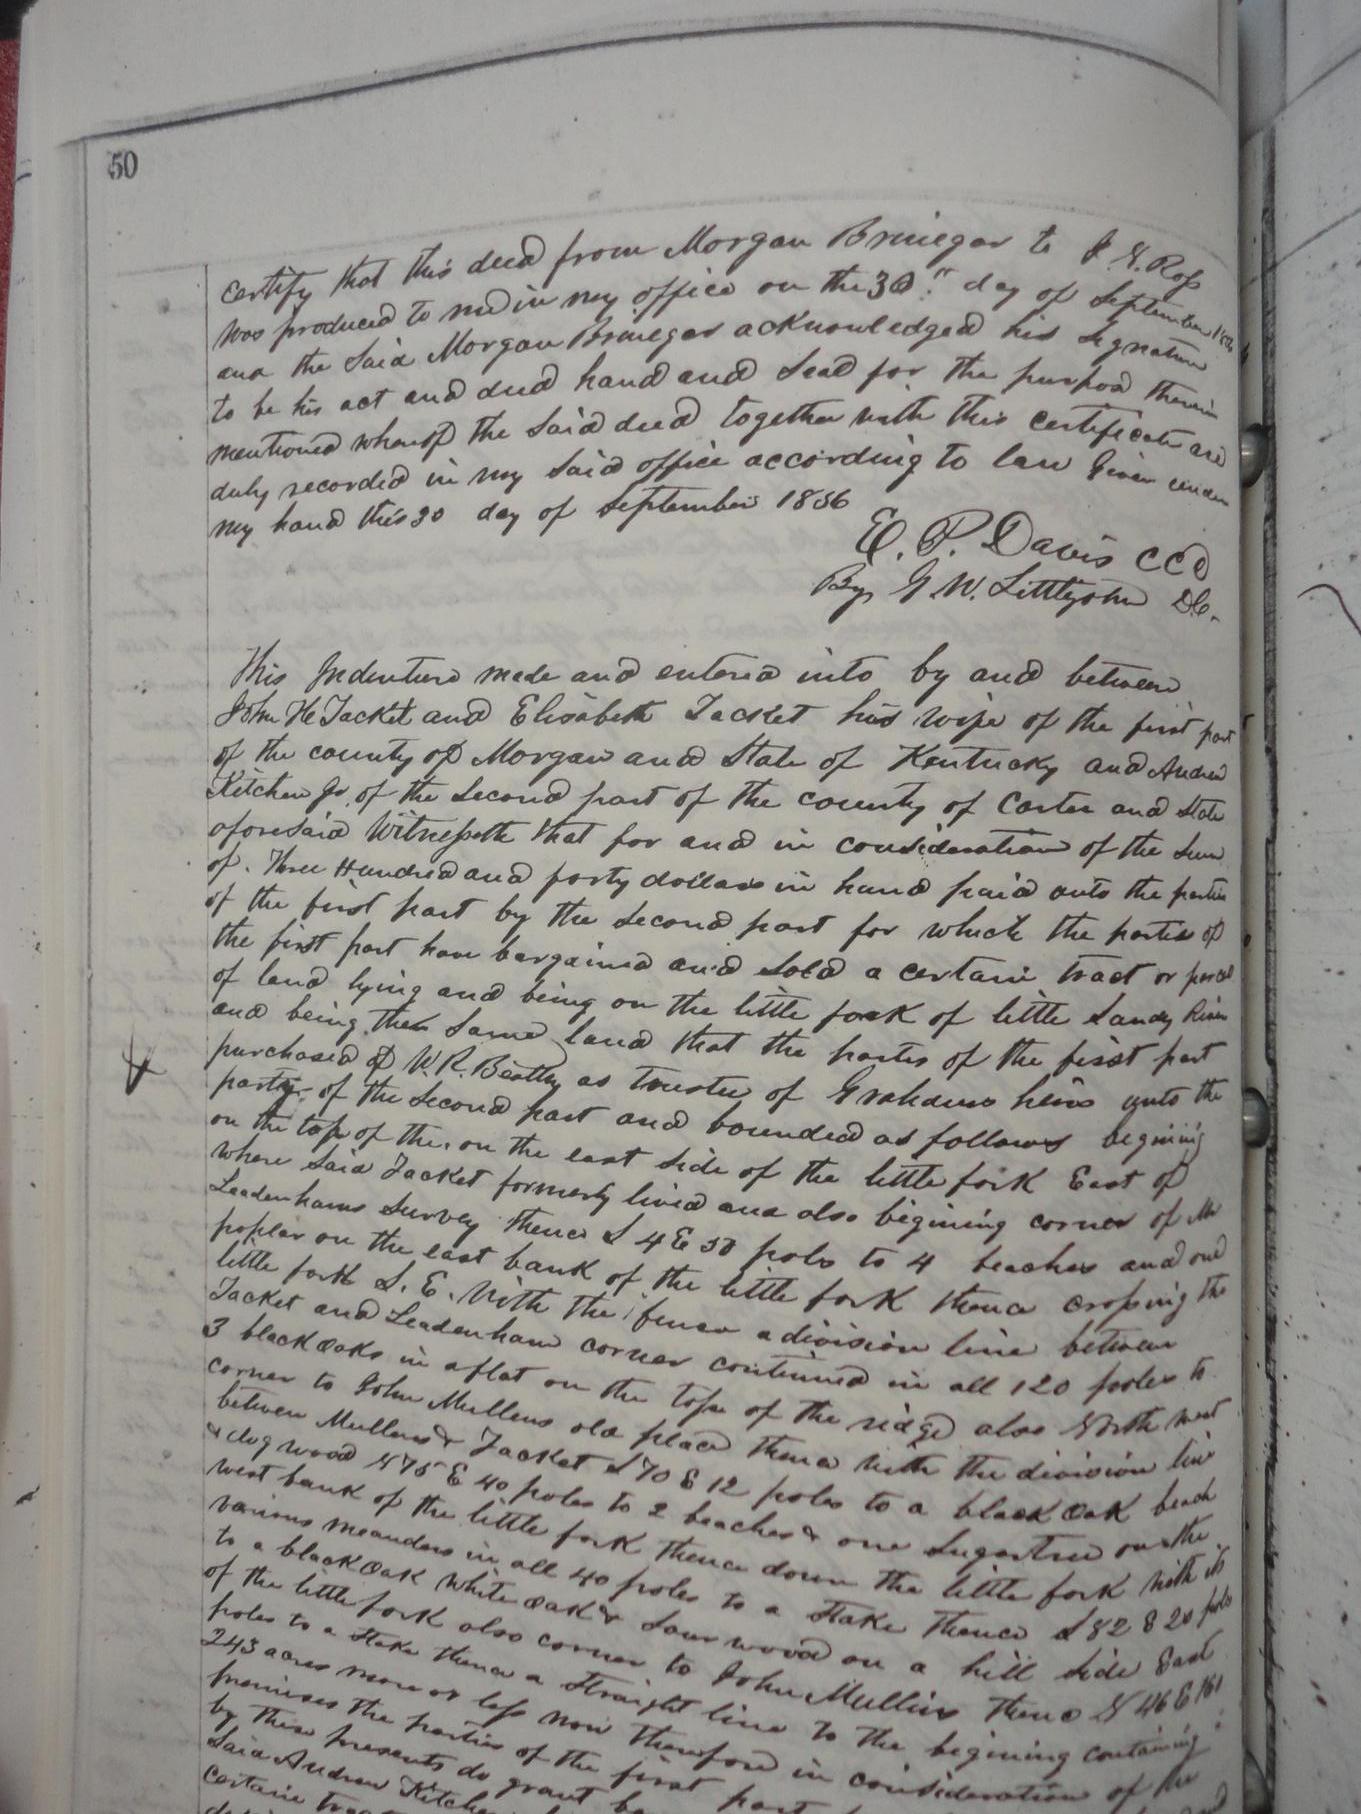 50
certify that this deed from Morgan Brinegar to J. G. Ross
was produced to me in my office on the 30th day of September
and the said Morgan Brinegar acknowledged his signature
to be his act and deed hand and seal for the purpos therein
mentioned wherof the said deed together with this certificate are
duly recorded in my said office according to law Given under
my hand this 30 day of September 1856
E. P. Davis CCC
By G. W. Littlejohn DC.
This Indenture made and entered into by and between
John H Jacket and Elisabeth Jacket his wife of the first part
of the county of Morgan and State of Kentucky and Andrew
Kitchen Jr. of the second part of the county of Carter and State
aforesaid Witnesseth that for and in consideration of the sum
of. Three Hundred and forty dollars in hand paid unto the parties
of the first part by the second part for which the parties of
the first part have bargained and sold a certain tract or parcel
of land lying and being on the little fork of little Sandy River
and being the same land that the parties of the first part
purchased of W. R. Beatty as Trustee of Grahams heirs unto the
party of the second part and bounded as follows begining
on the top of the on the east side of the little fork East of
where said Jacket formerly lived and also begining corner of Mr
Leadenhams Survey thence S 4 E 50 poles to 4 beaches and one
poplar on the east bank of the little fork thence crossing the
little fork S. E. with the fence a division line between
Jacket and Leadenham corner continued in all 120 poles to
3 black oaks in a flat on the top of the ridge also North west
corner to John Mullens old place thence with the division line
between Mullens & Jacket S 70 E 12 poles to a black oak beach
& dog wood N 75 E 40 poles to 2 beaches & one Sugartree on the
west bank of the little fork thence down the little fork with its
various meanders in all 40 poles to a stake thence S 82 E 20 poles
to a black oak white oak & sour wood on a hill side East
of the little fork also corner to John Mullins thence N 46 E 161
poles to a stake thence a straight line to the begining containing
243 acres more or less now therefore in consideration of the
premises the parties of the first part
by these presents do grant
said Andrew Kitchen
certain tract